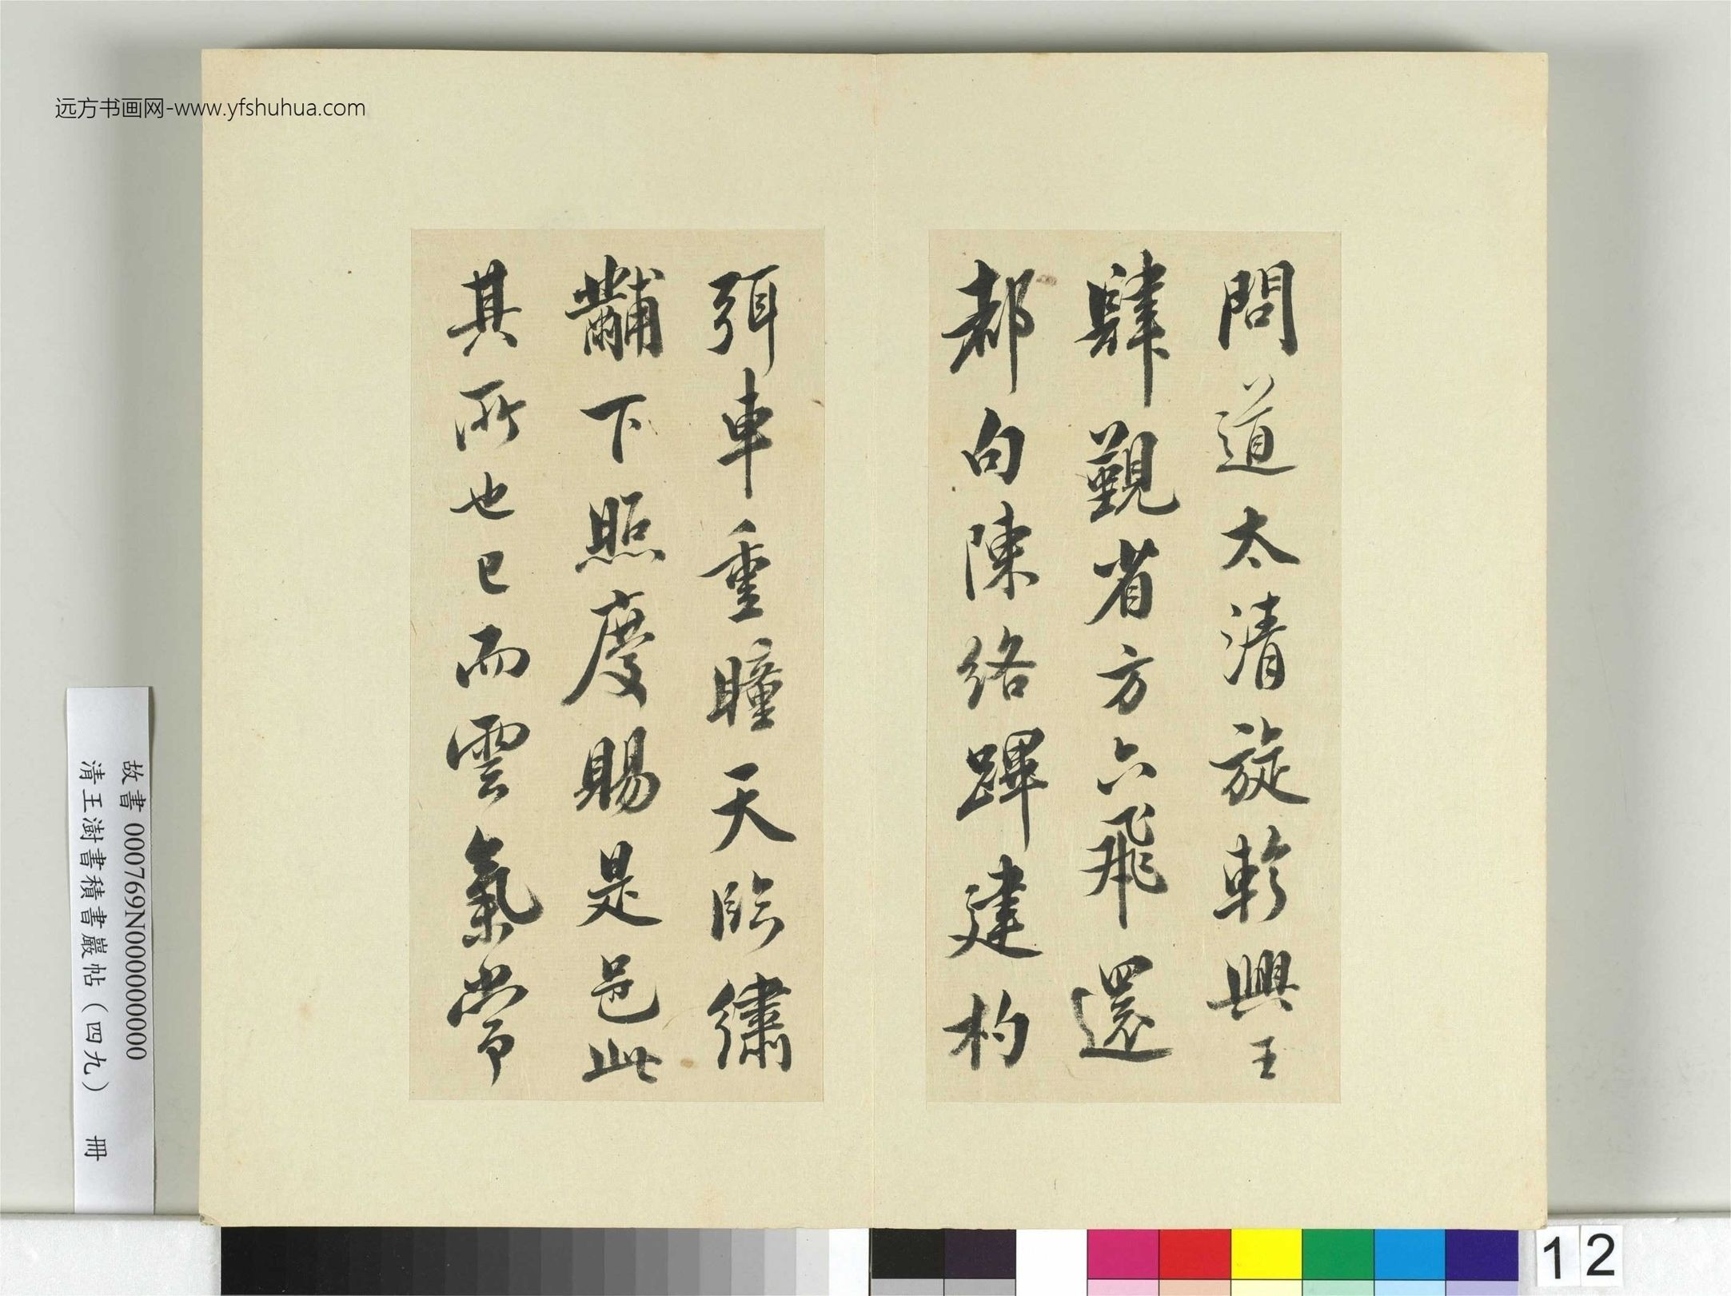 远方书画网-www.yfshuhua.com
問道太清旋軫興王
肆覲省方六飛還
都句陳絡蹕建杓
弭車重瞳天臨繡
黼下照慶賜是邑此
其所也已而雲氣常
故書 000769N000000000
清王澍書積書巖帖(四九) 冊
12